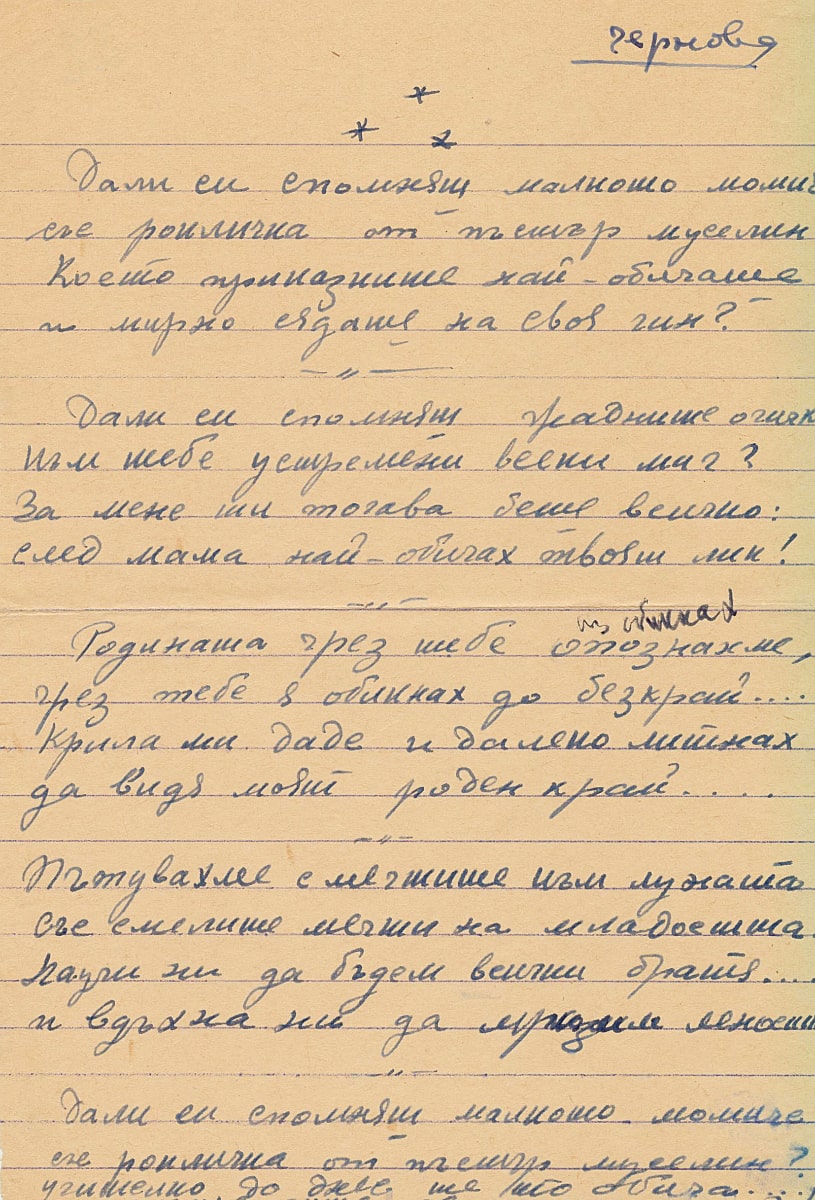 Чернова
* * *
Дали си спомняш малкото момич
със рокличка от пъстър муселин
Което приказките най-обичаше
и мирно сядаше на своя чин?
— „ —
Дали си спомняш жадните очич
към тебе устремени всеки миг?
За мене ти тогава беше всичко:
след мама най-обичах твоят лик!
— „ —
обикнах
Родината чрез тебе опознахме,
чрез тебе я обикнах до безкрай....
Крила ми даде и далеко литнах
да видя моят роден край.....
— „ —
Пътувахме с мечтите към луната
със смелите мечти на младостта.
Научи ни да бъдем всички братя....
и вдъхна ни да мразим леност
— „ —
Дали си спомняш малкото момиче
със рокличка от пъстър муселин?
учителко до днес те то обича....